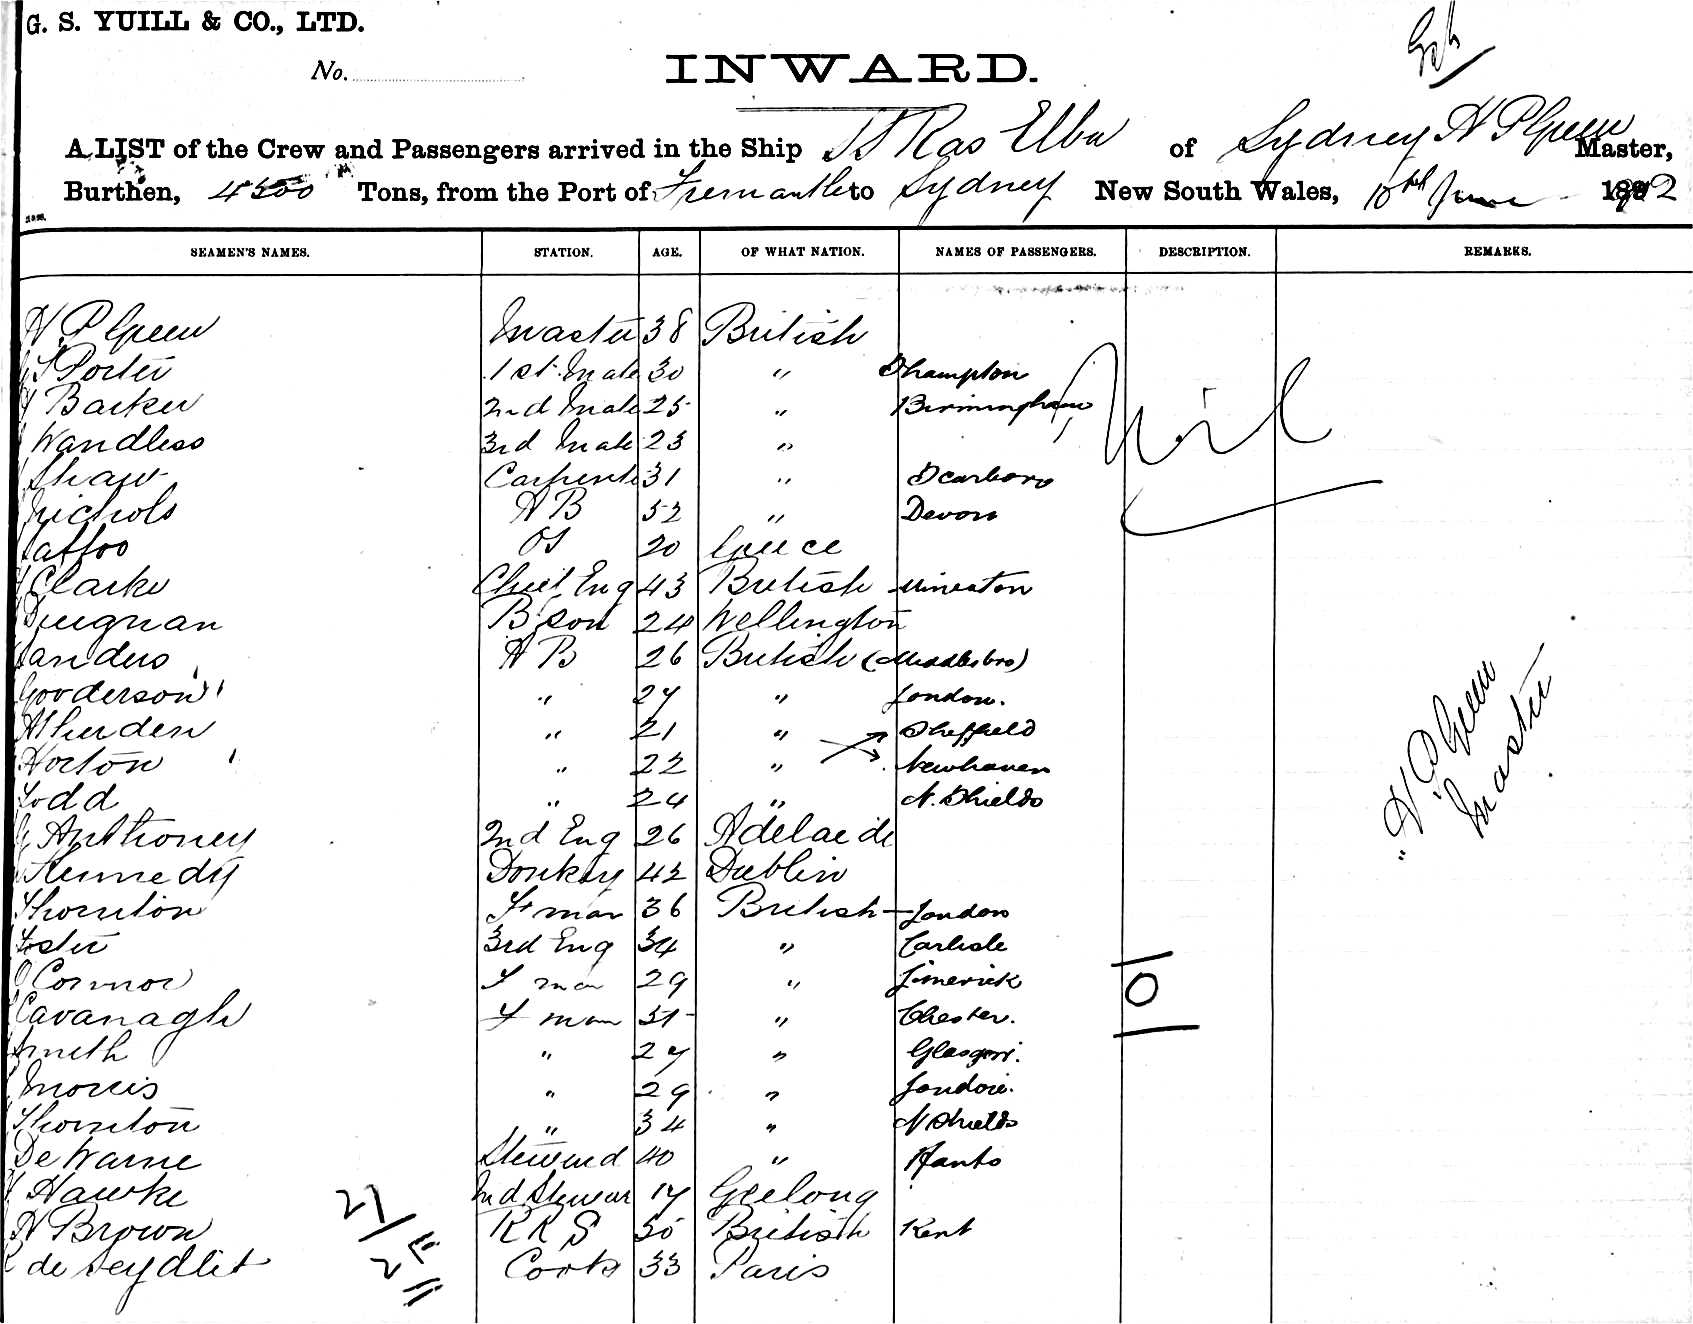 G. S. YUILL & CO., LTD.
No.
INWARD.
A LIST of the Crew and Passengers arrived in the Ship SS Ras Elba of Sydney H P Green Master,
Burthen, 4500 Tons, from the Port of Fremantle to Sydney New South Wales, 10th June 1902
SEAMEN'S NAMES. STATION. AGE. OF WHAT NATION. NAMES OF PASSENGERS. DESCRIPTION. REMARKS.
H P Green Master 38 British
Porter 1st Mate 30 " Shampton
Barker 2nd Mate 25 " Birmingham
Nil
Wandless 3rd Mate 23 "
Shaw Carpent 31 " Scarboro
Nichols A B 52 " Devon
OS 20 Greece
Clarke Chief Eng 43 British Nuneaton
Duignan B son 24 Wellington
anders A B 26 British (Middlesbro)
Gooderson " 27 " London.
" 21 " Sheffield
Horton " 22 " Newhaven
Todd " 24 " N. Shields
H P Green
Master
Anthoney 2nd Eng 26 Adelaide
Kennedy Donkey 42 Dublin
Thornton F man 36 British - London
Foster 3rd Eng 34 " Carlisle
O Connor F man 29 " Limerick
Cavanagh F man 31 " Chester.
Smith " 27 " Glasgow.
Morris " 29 " London.
Thornton " 34 " N Shields
De Warne Steward 40 " Hants
Hawke 2nd Stewar 17 Geelong
27/
H Brown R R S 50 British Kent
de Seydlit Cook 33 Paris